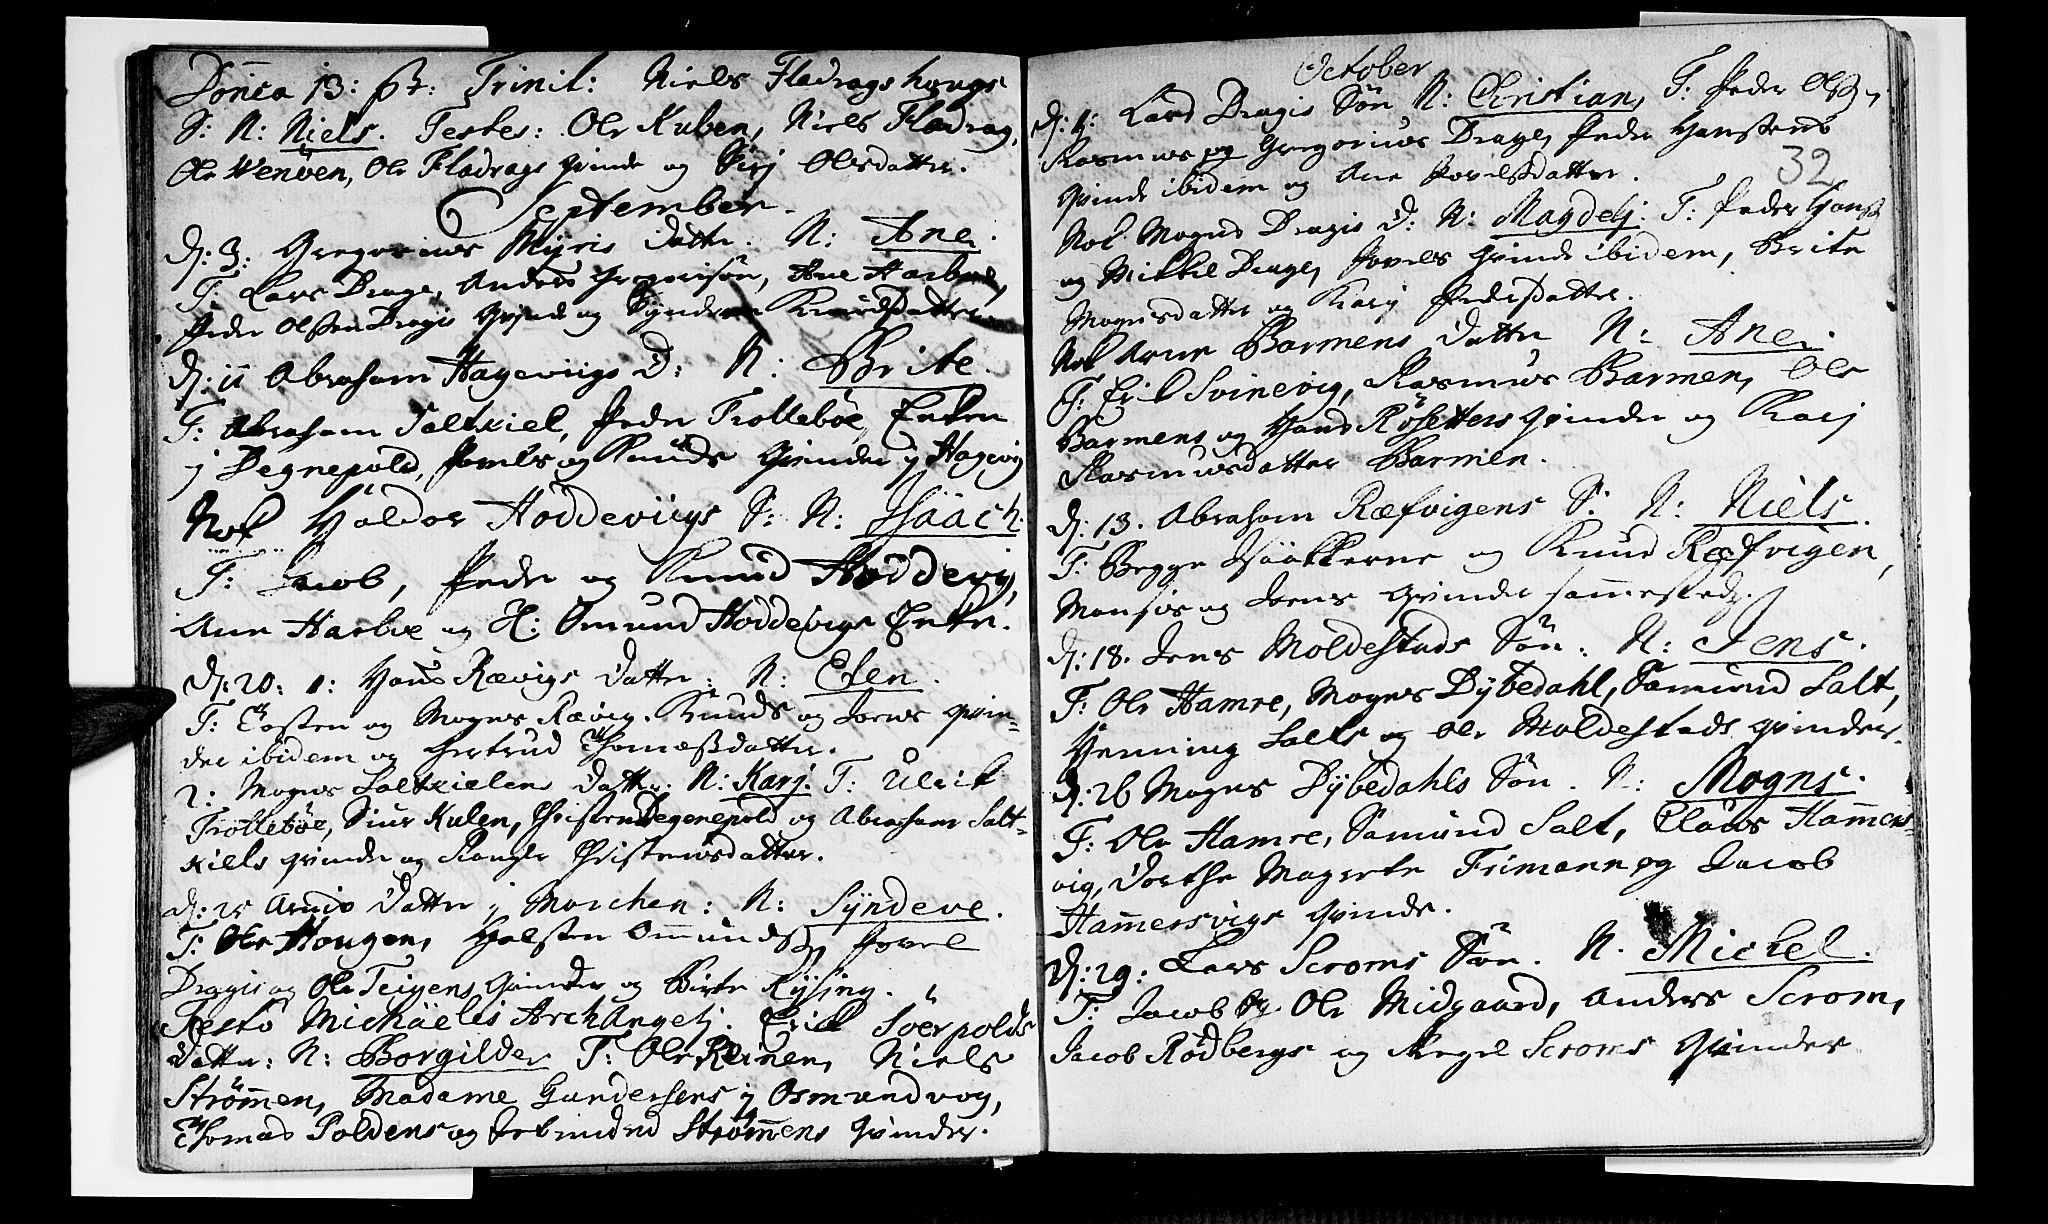 Don̅ica 13: pt: Trinit: Niels Fladrags hougs
S: N: Niels. Testes: Ole Kuben, Niels Fladrag,
Ole Wenøen, Ole Fladrags Qvinde og Siri Olesdatter.
September.
D: 3: Gregorius Myris Datter. N: Ane.
T: Lars Drage, Anders Gregorisøn, Ane Harboe,
Peder Olsen Dragis Qvinde og Synderve Knudsdatter.
D: 11 Abraham Hageviigs D: N: Brite.
T: Abraham Saltkiel, Peder Trolleböe, Enken
i Degnepold, Povels og Knuds Qvinder i Hagevig
Nok Haldor Hoddeviigs S: N: Isäach.
T: Jacob, Peder og Knud Hoddevig,
Ane Harboe og H: Omund Hoddevigs Enke.
D: 20: 1: Hans Rævigs Datter: N: Elen.
T: Tosten og Mogns Rævig. Knuds og Joens Qvin-
der ibidem og Gertrud Thomæsdatter.
2: Mogns Saltkielen Datter. N: Karj. T: Ulrik
Trolleböe, Siur Kulen, Christen Degnepold og Abraham Salt-
kiels Qvinde og Rangle Christensdatter.
D: 25 Datter i Morchen: N: Sÿndeve.
T: Ole Hougen, Halsten Omunds, Povel
Dragis og Ole Teigens Qvinder og Birte Rÿsing.
Festo Michäelis Archangelj. Erick Söerpolds
Datter: N: Borgilder T: Ole Reinen, Niels
Strøm̅en, Madame Gundersens i Osmundvog,
Thomas Poldens og Strøm̅ens Qvinder.
October
D: 4: Lars Dragis Søn N: Christian, T: Peder Ols:,
Rasmus og Gregorius Drage, Peder Hansens
Qvinde ibidem og Ane Povelsdatter.
32
Nok Mogns Dragis D: N: Magdelj. T: Peder Hans:
og Mikkel Drage, Povels Qvinde ibidem, Brite
Mognsdatter og Karj Pedersdatter.
Nok Arne Barmens Datter N: Ane.
T: Erik Svinevig, Rasmus Barmen, Ole
Barmens og Hans Röesetters Qvinder og Karj
Rasmusdatter Barmen.
D: 13. Abraham Ræfvigens S: N: Niels.
T: Begge Isäakkerne og Knud Ræfvigen,
Monsis og Joens Qvinder sam̅estedz.
D: 18. Jens Moldestads Søn. N: Jens.
T: Ole Hamre, Mogns Dÿbedahl, Samund Salt,
Henning Salts og Ole Moldestads Qvinder.
D: 26 Mogns Dÿbedahls Søn. N: Mogns.
T: Ole Hamre, Samund Salt, Claus Ham̅ers-
vig, Dorthe Magrete Frimann og Jacob
Ham̅ersvigs Qvinde.
D: 29: Lars Scroms Søn. N. Mickel.
T: Jacob og Ole Midgaard, Anders Scrom,
Jacob Rødbergs og Scroms Qvinder